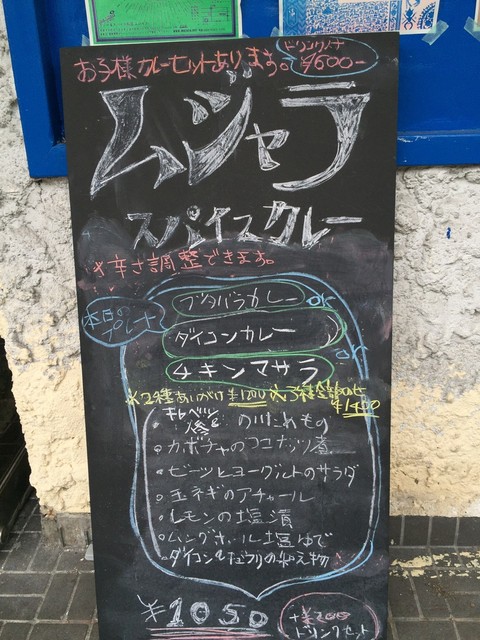 お子様カレーセットあります。 ドリンク付 ¥600-
ムジャラ
スパイスカレー
※辛さ調整できます。
本日のプレート
ブタバラカレー or
ダイコンカレー or
チキンマサラ
※2種あいがけ ¥1200 ※3種全部のせ ¥1400
・キャベツと の川たれもの
・カボチャのココナッツ煮
・ビーツとヨーグルトのサラダ
・玉ネギのアチャール
・レモンの塩漬
・ムングホール塩ゆで
・ダイコンとだフリの和え物
¥1050
+¥200 ドリンクセット